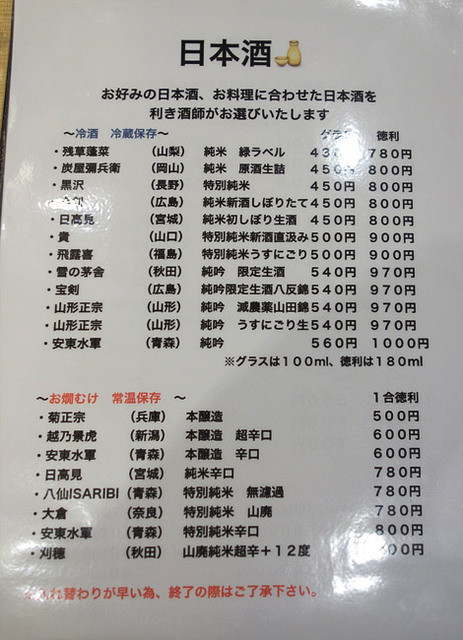 日本酒🍶
お好みの日本酒、お料理に合わせた日本酒を
利き酒師がお選びいたします
～冷酒 冷蔵保存～ グラス 徳利
・残草蓬莱 （山梨） 純米 緑ラベル 780円
・炭屋彌兵衛 （岡山） 純米 原酒生詰 450円 800円
・黒沢 （長野） 特別純米 450円 800円
（広島） 純米新酒しぼりたて 450円 800円
・日高見 （宮城） 純米初しぼり生酒 450円 800円
・貴 （山口） 特別純米新酒直汲み 500円 900円
・飛露喜 （福島） 特別純米うすにごり 500円 900円
・雪の茅舎 （秋田） 純吟 限定生酒 540円 970円
・宝剣 （広島） 純吟限定生酒八反錦 540円 970円
・山形正宗 （山形） 純吟 減農薬山田錦 540円 970円
・山形正宗 （山形） 純吟 うすにごり生 540円 970円
・安東水軍 （青森） 純吟 560円 1000円
※グラスは100ml、徳利は180ml
～お燗むけ 常温保存 ～ 1合徳利
・菊正宗 （兵庫） 本醸造 500円
・越乃景虎 （新潟） 本醸造 超辛口 600円
・安東水軍 （青森） 本醸造 辛口 600円
・日高見 （宮城） 純米辛口 780円
・八仙ISARIBI （青森） 特別純米 無濾過 780円
・大倉 （奈良） 特別純米 山廃 780円
・安東水軍 （青森） 特別純米辛口 800円
・刈穂 （秋田） 山廃純米超辛＋12度 00円
入れ替わりが早い為、終了の際はご了承下さい。